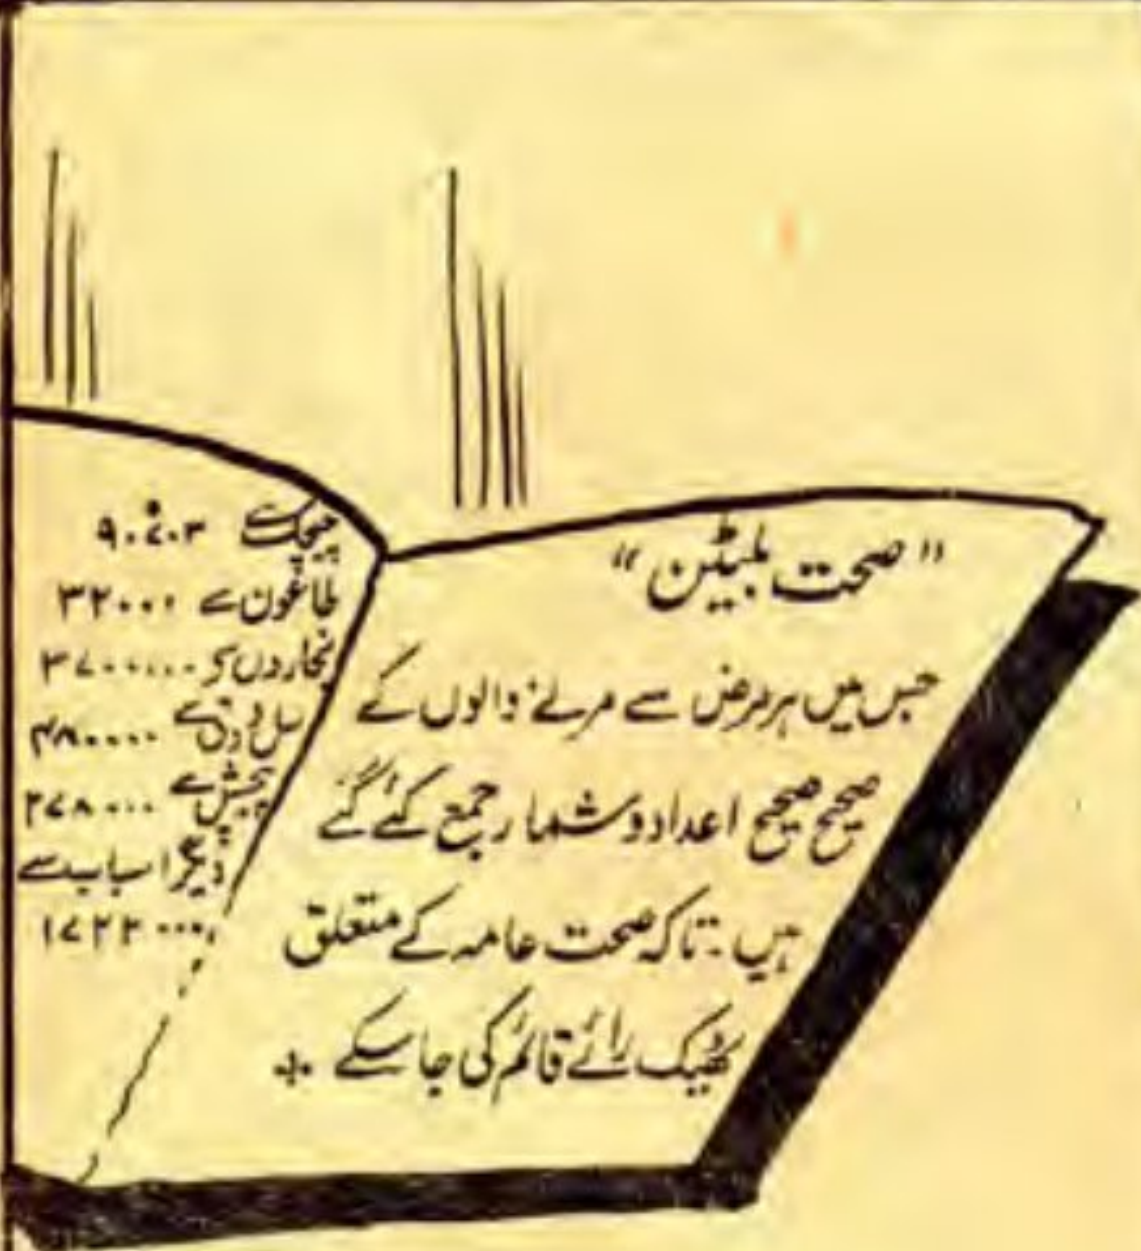 "صحت بلیٹن"
جس میں ہر مرض سے مرنے والوں کے
صحیح صحیح اعداد و شمار جمع کئے گئے
ہیں۔ تاکہ صحت عامہ کے متعلق
ٹھیک رائے قائم کی جا سکے
چیچک سے ۹۰۷۰۳
طاعون سے ۳۲۰۰۰
بخاروں سے ۳۷۰۰۰۰۰
سل و دق سے
پیچش سے ۲۷۸۰۰۰
دیگر اسباب سے